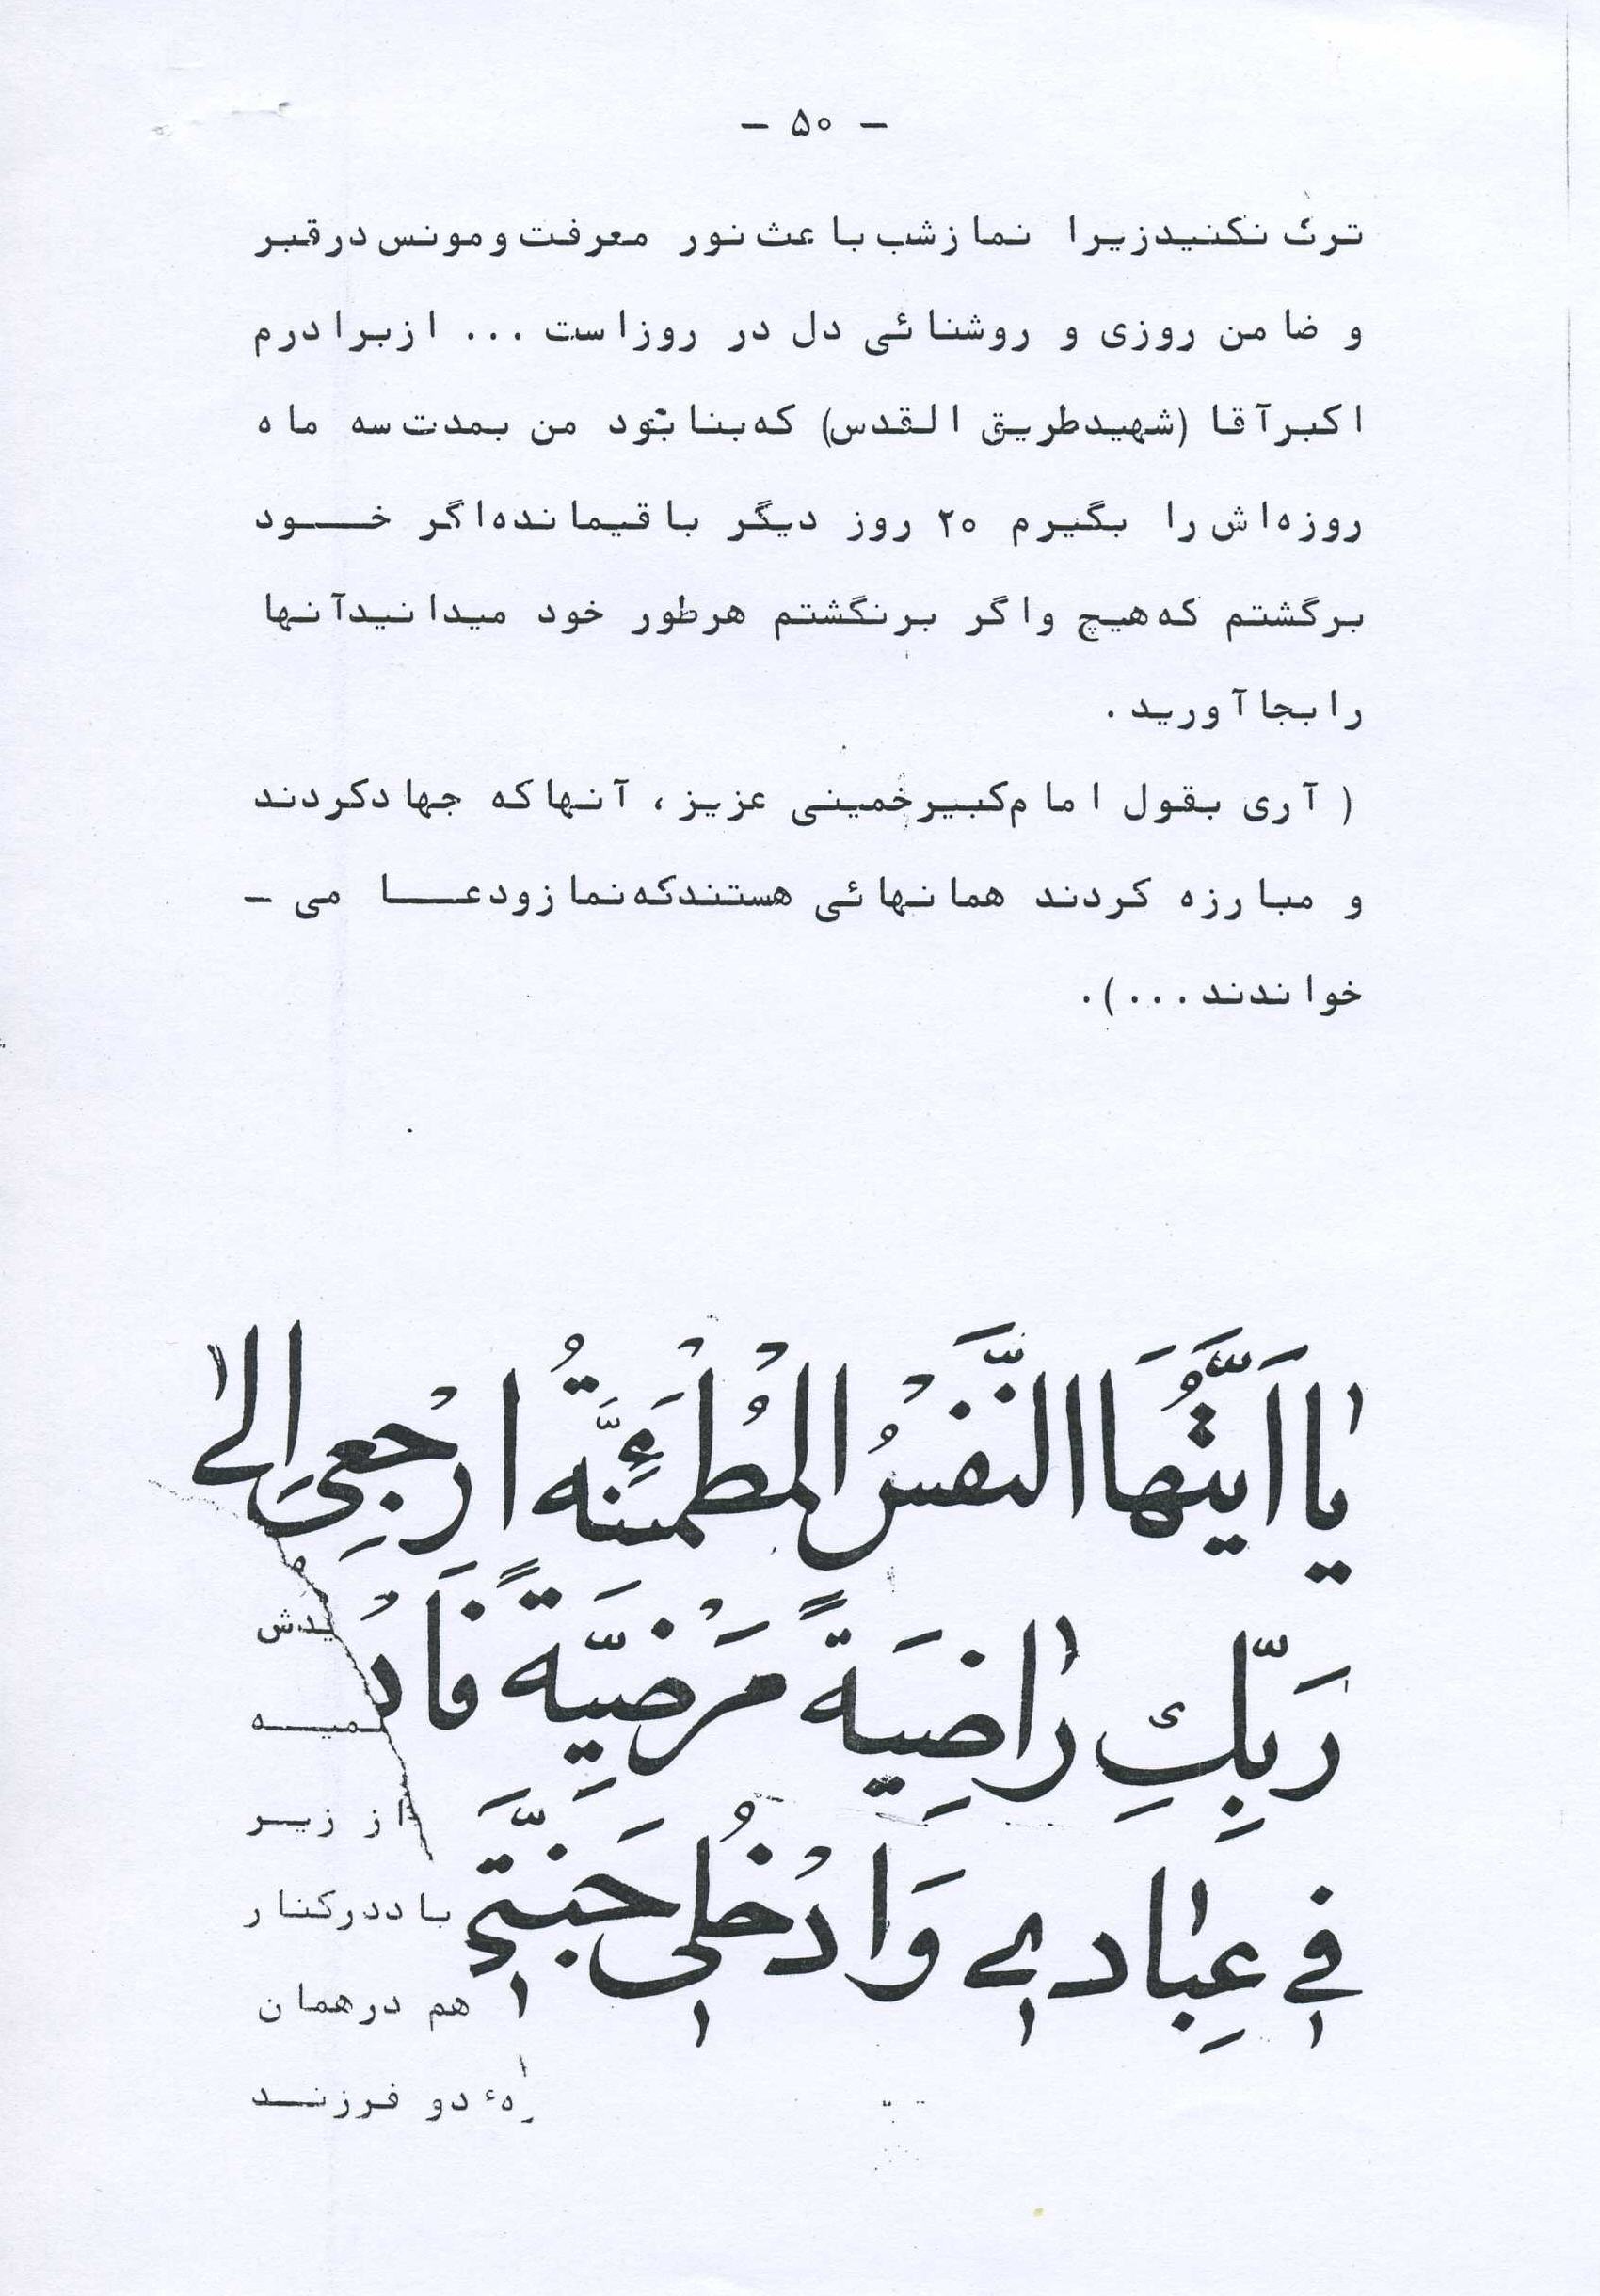 - ۵۰ -
ترک نکنید زیرا نماز شب باعث نور معرفت و مونس در قبر
و ضامن روزی و روشنائی دل در روز است ... از برادرم
اکبرآقا (شهید طریق القدس) که بنا بود من بمدت سه ماه
روزه‌اش را بگیرم ۲۰ روز دیگر باقیمانده اگر خود
برگشتم که هیچ و اگر برنگشتم هرطور خود میدانید آنها
را بجا آورید.
( آری بقول امام کبیر خمینی عزیز، آنها که جهاد کردند
و مبارزه کردند همانهائی هستند که نماز و دعا می -
خواندند ...).
يٰا اَيَّتُهَا النَّفْسُ الْمُطْمَئِنَّةُ ارْجِعِي اِلىٰ
رَبِّكِ رٰاضِيَةً مَرْضِيَّةً فَادْ
خُلِي فِي عِبٰادِي وَادْخُلِي جَنَّتِي
یدش
میه
از زیر
باد در کنار
هم در همان
دو فرزند